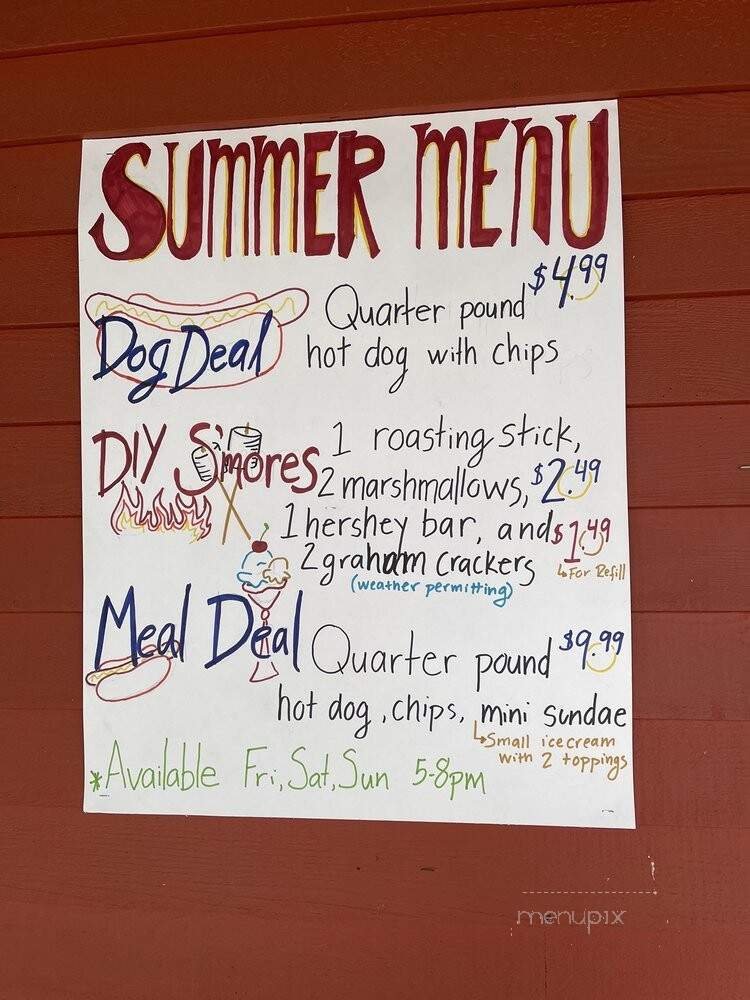 SUMMER MENU
$4.99
Dog Deal
Quarter pound
hot dog with chips
DIY S'mores
1 roasting stick,
2 marshmallows, $2.49
1 hershey bar, and $1.49
2 graham crackers
↳For Refill
(weather permitting)
Meal Deal
Quarter pound $9.99
hot dog, chips, mini sundae
↳Small ice cream
with 2 toppings
*Available Fri, Sat, Sun 5-8pm
menupix